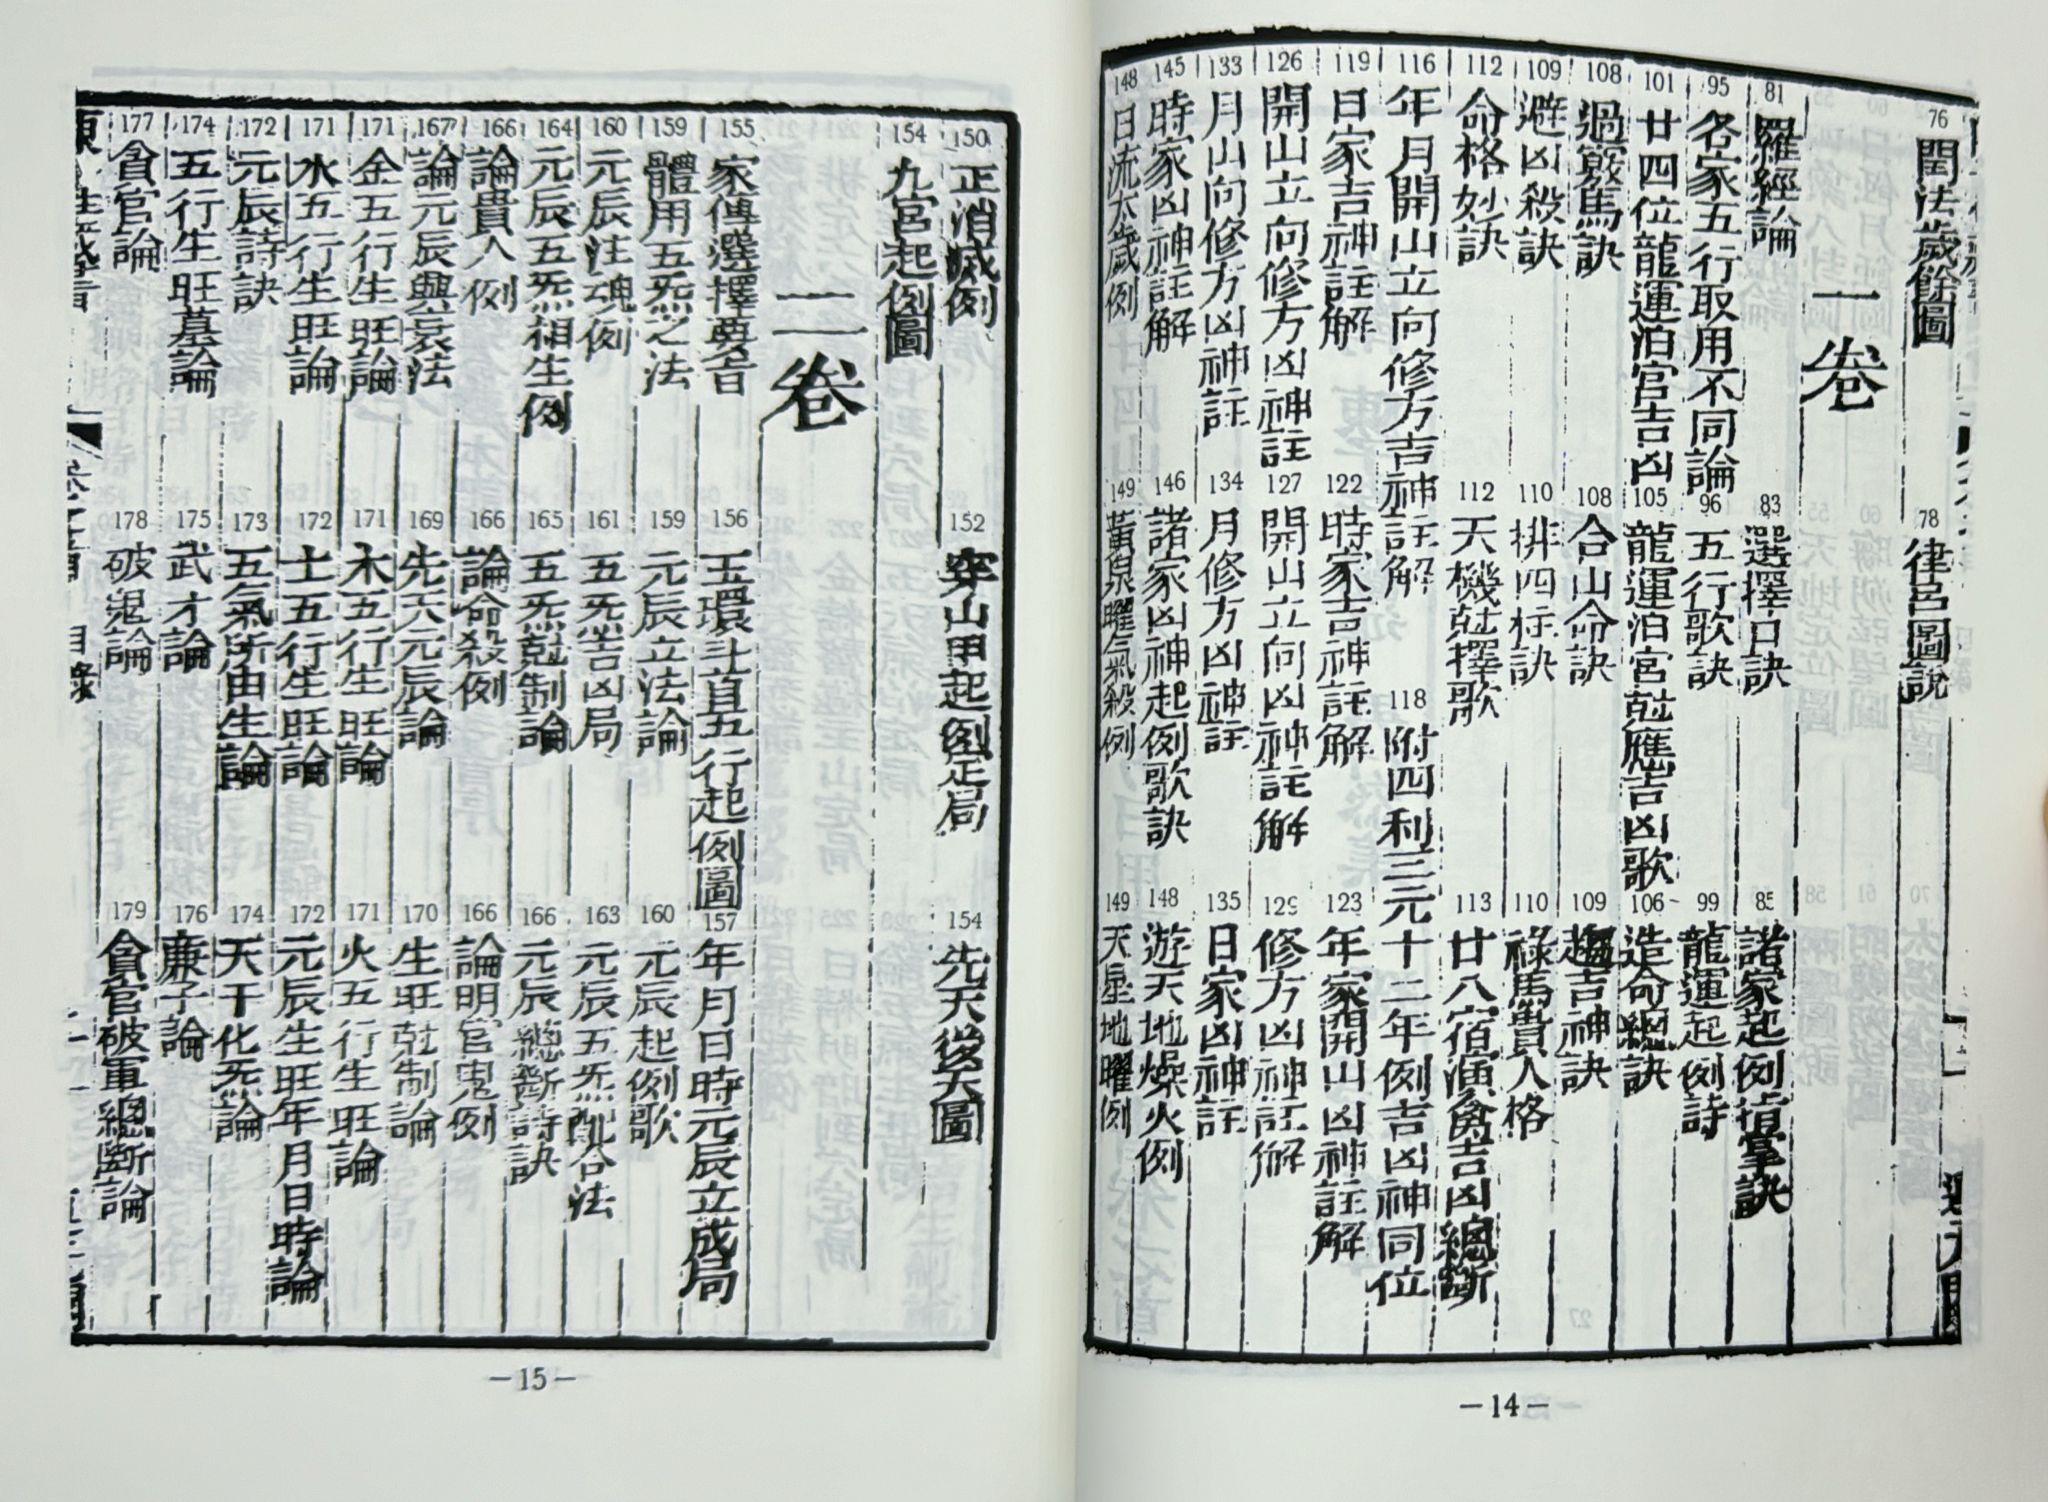 76 閏法歲餘圖
78 律呂圖說
一卷
81 羅經論
83 選擇口訣
85 諸家起例掯掌訣
95 各家五行取用不同論
96 五行歌訣
99 龍運起例詩
101 廿四位龍運泊宮吉凶
105 龍運泊宮尅應吉凶歌
106 造命總訣
108 過簸馬訣
108 合山命訣
109 趨吉神訣
109 避凶殺訣
110 排四柱訣
110 祿馬貴人格
112 命格妙訣
112 天機尅擇歌
113 廿八宿演禽吉凶總斷
116 年月開山立向修方吉神註解
118 附四利三元十二年例吉凶神同位
119 日家吉神註解
122 時家吉神註解
123 年家開山凶神註解
126 開山立向修方凶神註
127 開山立向凶神註解
129 修方凶神註解
133 月山向修方凶神註
134 月修方凶神註
135 日家凶神註
145 時家凶神註解
146 諸家凶神起例歌訣
148 遊天地燥火例
148 日流太歲例
149 黃泉曜气殺例
149 天星地曜例
—14—
150 正消滅例
152 穿山甲起例定局
154 先天後天圖
154 九宮起例圖
二卷
155 家傳選擇要旨
156 玉環斗首五行起例圖
157 年月日時元辰立成局
159 體用五炁之法
159 元辰立法論
160 元辰起例歌
160 元辰注魂例
161 五炁吉凶局
163 元辰五炁配合法
164 元辰五炁相生例
165 五炁尅制論
166 元辰總斷詩訣
166 論貴人例
166 論命殺例
166 論明官鬼例
167 論元辰興衰法
169 先天元辰論
170 生旺尅制論
171 金五行生旺論
171 木五行生旺論
171 火五行生旺論
171 水五行生旺論
172 土五行生旺論
172 元辰生旺年月日時論
172 元辰詩訣
173 五氣所由生論
174 天干化炁論
174 五行生旺墓論
175 武才論
176 廉子論
177 貪官論
178 破鬼論
179 貪官破軍總斷論
目錄
—15—